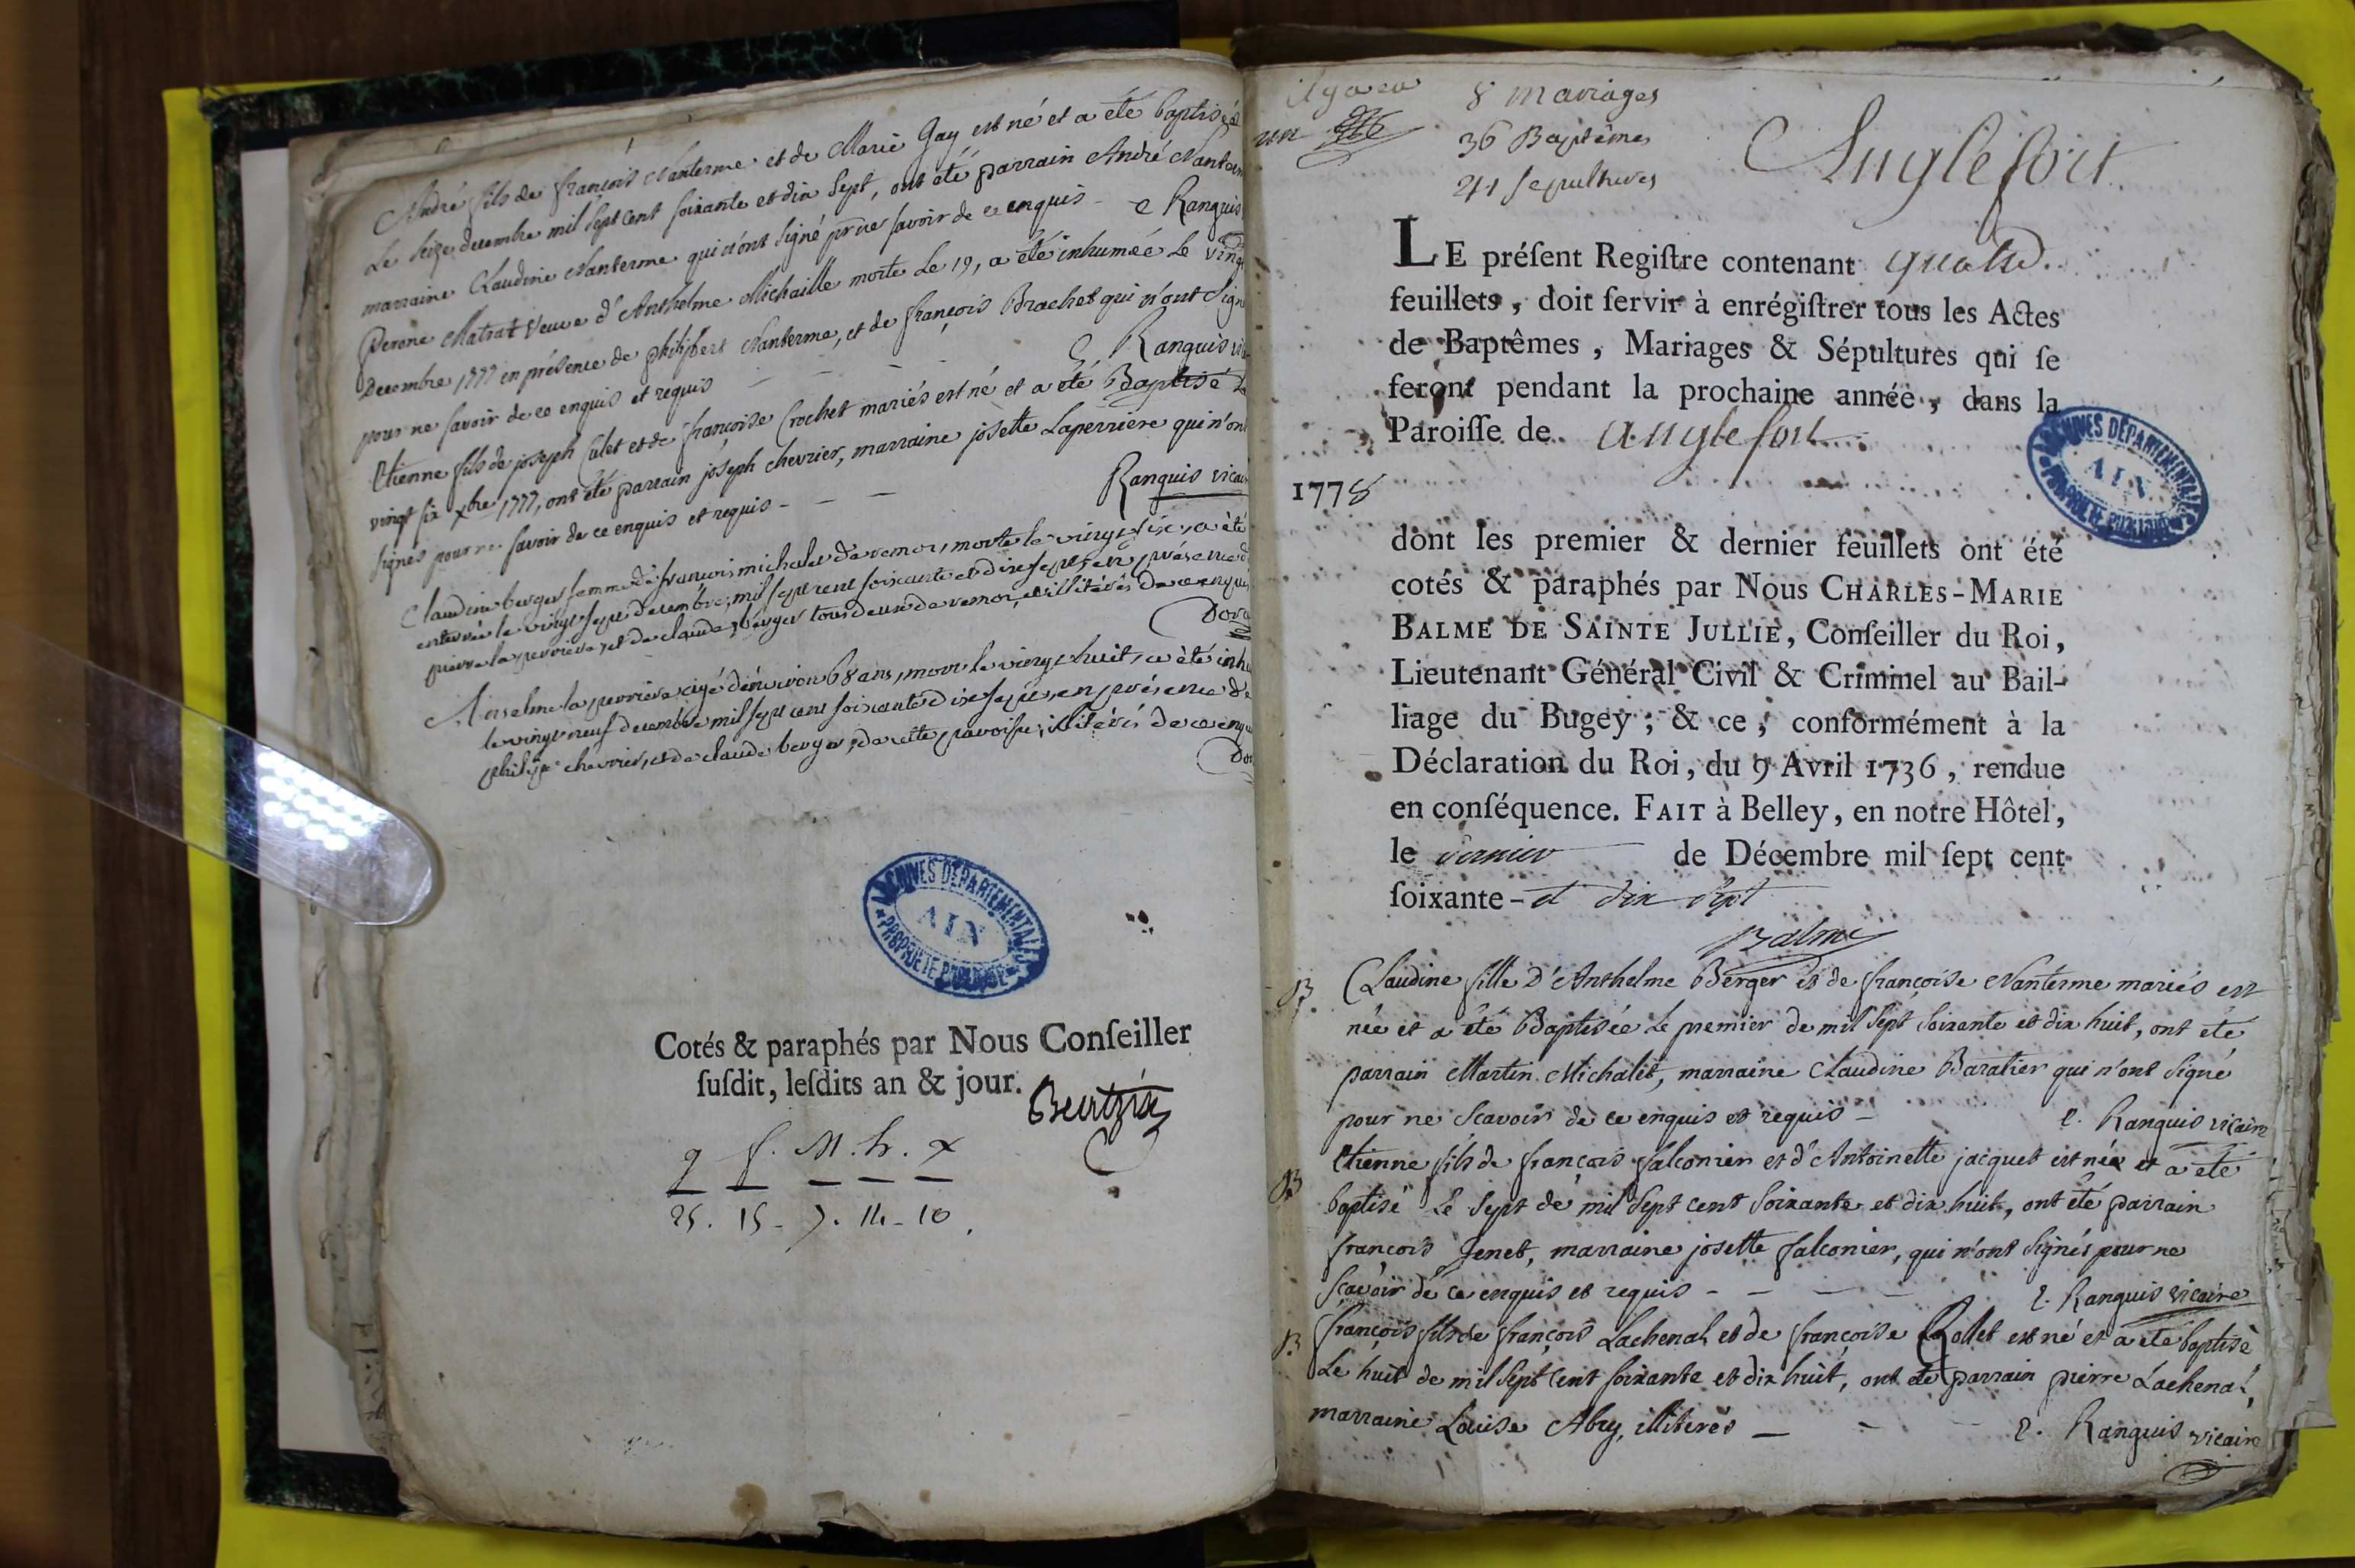 André fils de françois Nanterme et de Marie Gay, est né et a été baptisé
Le seize decembre mil sept cent soixante et dix sept, ont été parrain André Nanterm
marraine Claudine Nanterme qui n'ont signé pr ne savoir de ce enquis - e Ranquis
Perone Matrat veuve d'Anthelme Michaille morte Le 19, a été inhumée Le vingt
Decembre 1777 en présence de philibert Nanterme, et de françois Brachet qui n'ont signé
pour ne savoir de ce enquis et requis - - - E. Ranquis vic
Etienne fils de joseph Calet et de françoise Crochet mariés est né et a été Baptisé Le
vingt six xbre 1777, ont été parrain joseph chevrier, marraine josette Laperriere qui n'ont
signés pour ne savoir de ce enquis et requis - - - Ranquis vicai
Claudine berger femme de françois michalet de vemor, morte le vingt six, a été
enterrée le vingt sept decembre, mil sept cent soixante et dix sept, en présence de
pierre la perriere, et de claude berger tous deux de vemor, illitérés de ce enquis
Anselme la perriere agé d'environ 68 ans, mort le vingt huit, a été inhu
le vingt neuf decembre mil sept cent soixante dix sept, en présence de
philipe chevrier, et de claude berger, de cette paroisse, illitérés de ce enqu
ARCHIVES DEPARTEMENTALES
AIN
PROPRIETE PUBLIQUE
Cotés & paraphés par Nous Conſeiller
ſuſdit, leſdits an & jour.
g f. M. h. x
25. 15 - 7. 14 - 10.
il y a eu 8 mariages
un 36 Baptêmes
41 sepultures
Anglefort
LE préſent Regiſtre contenant quatre
feuillets, doit ſervir à enrégiſtrer tous les Actes
de Baptêmes, Mariages & Sépultures qui ſe
feront pendant la prochaine année, dans la
Paroiſſe de anglefort
1778
ARCHIVES DEPARTEMENTALES
AIN
PROPRIETE PUBLIQUE
dont les premier & dernier feuillets ont été
cotés & paraphés par Nous CHARLES-MARIE
BALME DE SAINTE JULLIE, Conſeiller du Roi,
Lieutenant Général Civil & Criminel au Bail-
liage du Bugey; & ce, conformément à la
Déclaration du Roi, du 9 Avril 1736, rendue
en conſéquence. FAIT à Belley, en notre Hôtel,
le dernier de Décembre mil ſept cent
ſoixante - et dix sept
Balme
B. Claudine fille D'Anthelme Berger et de françoise Nanterme mariés est
née et a été Baptisée Le premier de mil sept soixante et dix huit, ont été
parrain Martin Michalet, marraine Claudine Baratier qui n'ont signé
pour ne scavoir de ce enquis et requis - e. Ranquis vicaire
B Etienne fils de françois falconier et d'Antoinette jacquet est née et a été
baptisé Le sept de mil sept cent soixante et dix huit, ont été parrain
françois Jenet, marraine josette falconier, qui n'ont signés pour ne
sçavoir de ce enquis et requis - - - - e. Ranquis vicaire
B françois fils de françois Lachenal et de françoise Rollet est né et a été baptisé
Le huit de mil sept cent soixante et dix huit, ont été parrain pierre Lachenal,
marraine Louise Abry, illiterés - - - e. Ranquis vicaire